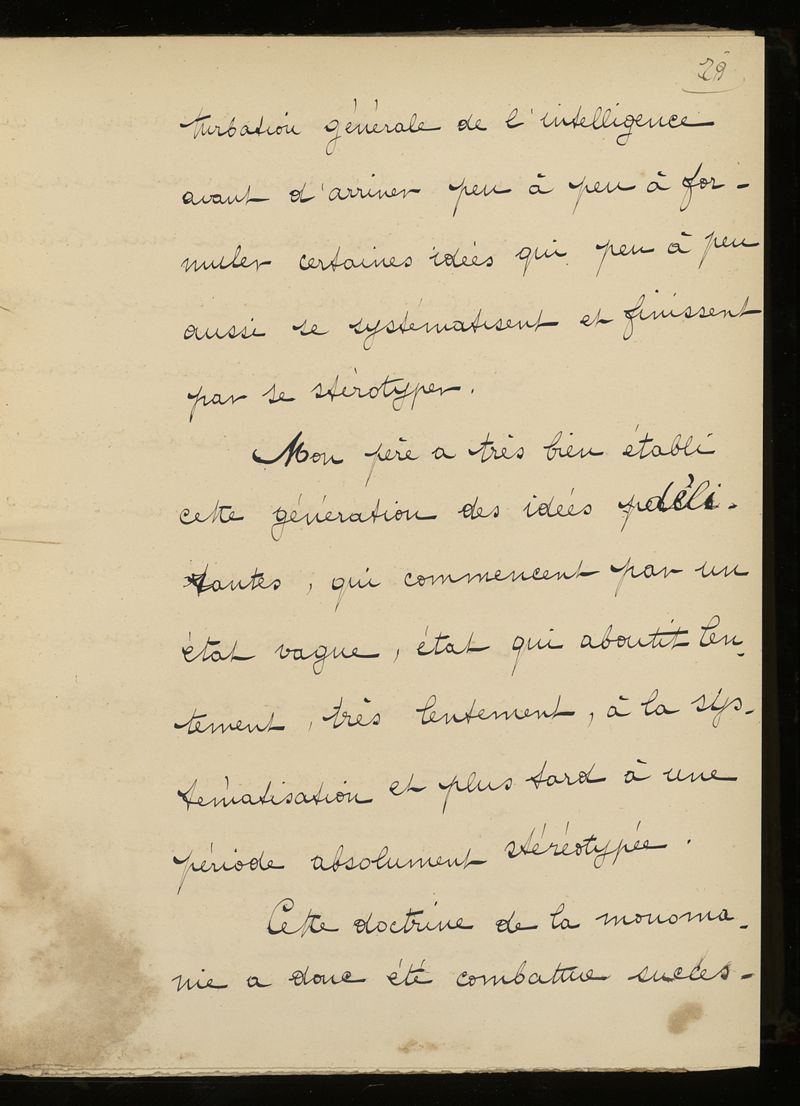 29
turbation générale de l'intelligence
avant d'arriver peu à peu à for-
muler certaines idées qui peu à peu
aussi se systématisent et finissent
par se stérotyper.
Mon père a très bien établi
cette génération des idées déli-
rantes, qui commencent par un
état vague, état qui aboutit len-
tement, très lentement, à la sys-
tématisation et plus tard à une
période absolument stéréotypée.
Cette doctrine de la monoma-
nie a donc été combattue succes-